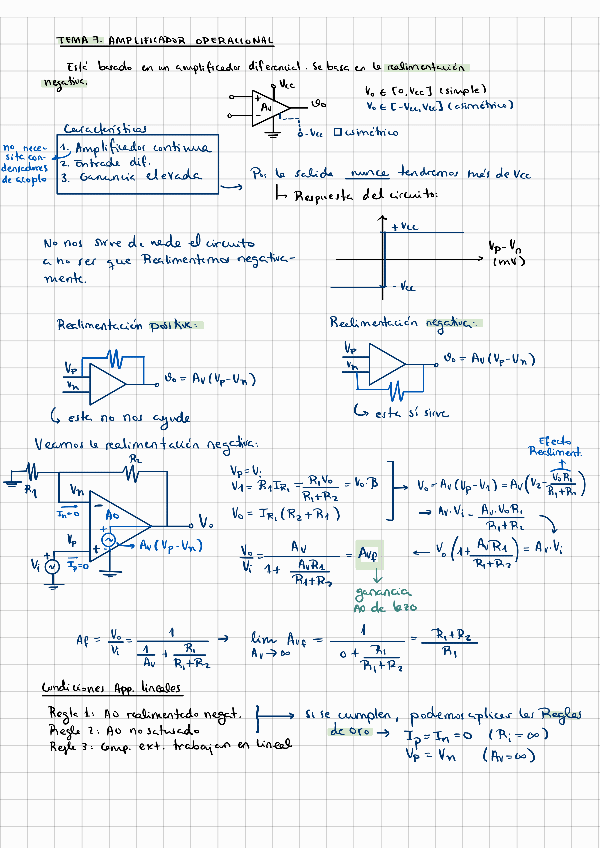 TEMA 7. AMPLIFICADOR OPERACIONAL
Está basado en un amplificador diferencial. Se basa en la realimentación
negativa.
Vcc
+
Av
-
vo
-Vcc □ asimétrico
Vo ∈ [0, Vcc] (simple)
Vo ∈ [-Vcc, Vcc] (asimétrico)
Características
no nece-
sita con-
densadores
de acoplo
1. Amplificador continua
2. Entrada dif.
3. Ganancia elevada
Por la salida nunca tendremos más de Vcc
↳ Respuesta del circuito:
+Vcc
Vp-Vn
(mV)
-Vcc
No nos sirve de nada el circuito
a no ser que Realimentemos negativa-
mente.
Realimentación positiva:
Vp
Vn
vo = Av (Vp-Vn)
↳ esta no nos ayuda
Realimentación negativa:
Vp
Vn
vo = Av (Vp-Vn)
↳ esta sí sirve
Veamos la realimentación negativa:
R1
R2
Vn
In=0
AO
-
+
Vp
Ip=0
Vi
Av (Vp-Vn)
Vo
Vp = Vi
V1 = R1 IR1 = R1Vo / (R1+R2) = Vo·B
Vo = IR1 (R2+R1)
Efecto
Realiment.
→ Vo = Av (Vp-V1) = Av (V2 - VoR1 / (R1+R2))
→ Av·Vi - Av·VoR1 / (R1+R2)
← Vo (1 + AvR1 / (R1+R2)) = Av·Vi
Vo / Vi = Av / (1 + AvR1 / (R1+R2)) = Avf
ganancia
AO de lazo
Af = Vo / Vi = 1 / (1/Av + R1 / (R1+R2)) → lim Av→∞ Avf = 1 / (0 + R1 / (R1+R2)) = (R1+R2) / R1
Condiciones App. lineales
Regla 1: AO realimentado negat.
Regla 2: AO no saturado
Regla 3: Comp. ext. trabajan en lineal
→ si se cumplen, podemos aplicar las Reglas
de oro → Ip = In = 0 (Ri = ∞)
Vp = Vn (Av = ∞)